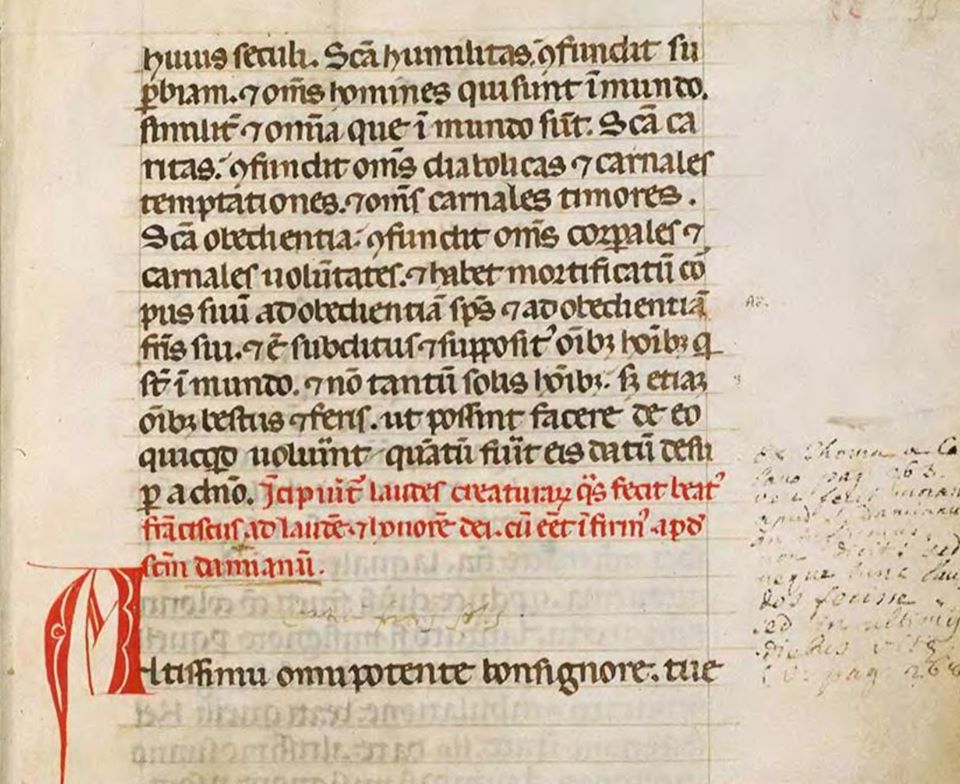 huius seculi. Sc̃a humilitas ꝯfundit su
ꝑbiam. ⁊ om̃s homines qui sunt ĩ mundo.
similit̾ ⁊ om̃ia que ĩ mundo sũt. Sc̃a ca
ritas. ꝯfundit om̃s diabolicas ⁊ carnales
temptationes. ⁊ om̃s carnales timores.
Sc̃a obedientia. ꝯfundit om̃s corꝑales ⁊
carnales uolũtates. ⁊ habet mortificatũ cor̃
pus suũ ad obedientiã sp̃s ⁊ ad obedientiã
fr̃is sui. ⁊ ẽ subditus ⁊ supposit᾽ oĩbꝫ hoĩbꝫ q̃
st̃ ĩ mundo. ⁊ nõ tantũ solis hõibꝫ. sꝫ etiaꝫ
oĩbꝫ bestiis ⁊ feris. ut possint facere de eo
quicqd̃ uolue͂int quãtũ fu͂it eis datũ desu
ꝑ a dñо. Jcipiũt laudes creaturaꝝ q̃s fecit beat᾽
frãciscus ad laudẽ ⁊ honorẽ dei. cũ eẽt ĩfirm᾽ apd̃
sc̃m damianũ.
Altissimu omnipotente bonsignore. tue